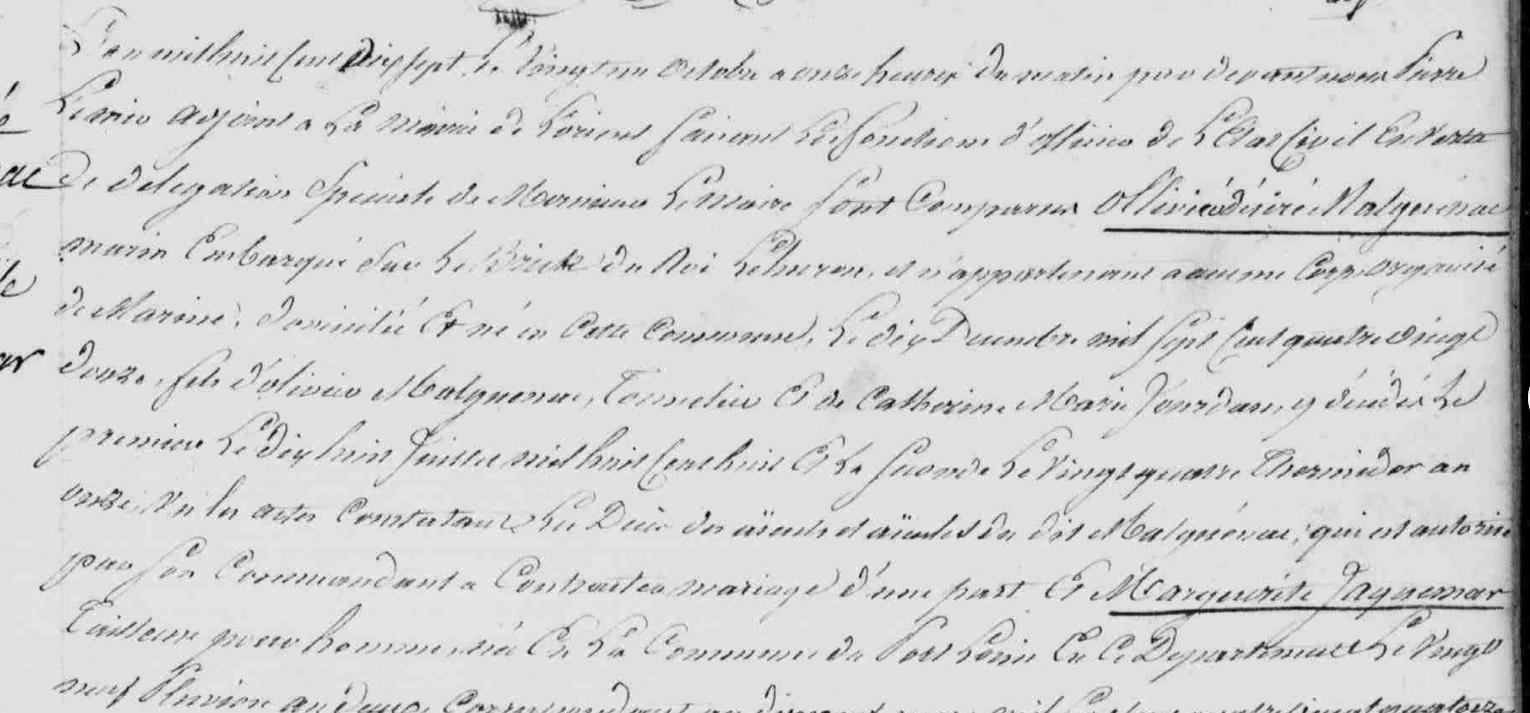 L'an mil huit cent dix sept le vingt un octobre a onze heures du matin par devant nous Pierre
adjoint a la mairie de Lorient faisant les fonctions d'officier de l'Etat Civil en vertu
de delegation speciale de Monsieur le maire sont comparus Ollivier désiré Malguenac
marin Embarqué sur le Brick du Roi et n'appartenant a aucun corps organisé
de Marine, domicilié et né en cette commune, le dix Decembre mil sept cent quatre vingt
douze, fils d'olivier Malguenac, Tonnelier et de Catherine Marie Jourdan, y décédés le
premier le dix huit juillet mil huit cent huit et la seconde le vingt quatre thermidor an
onze, vu les actes constatant les Décès des aïeuls et aïeules du dit Malguénac, qui est autorisé
par son Commandant a contracter mariage d'une part Et Marguerite Jaquemar
Tailleuse pour homme née en la commune du Port Louis en ce Departement le vingt
neuf Pluviose an deux correspondant au mil sept cent quatre vingt quatorze